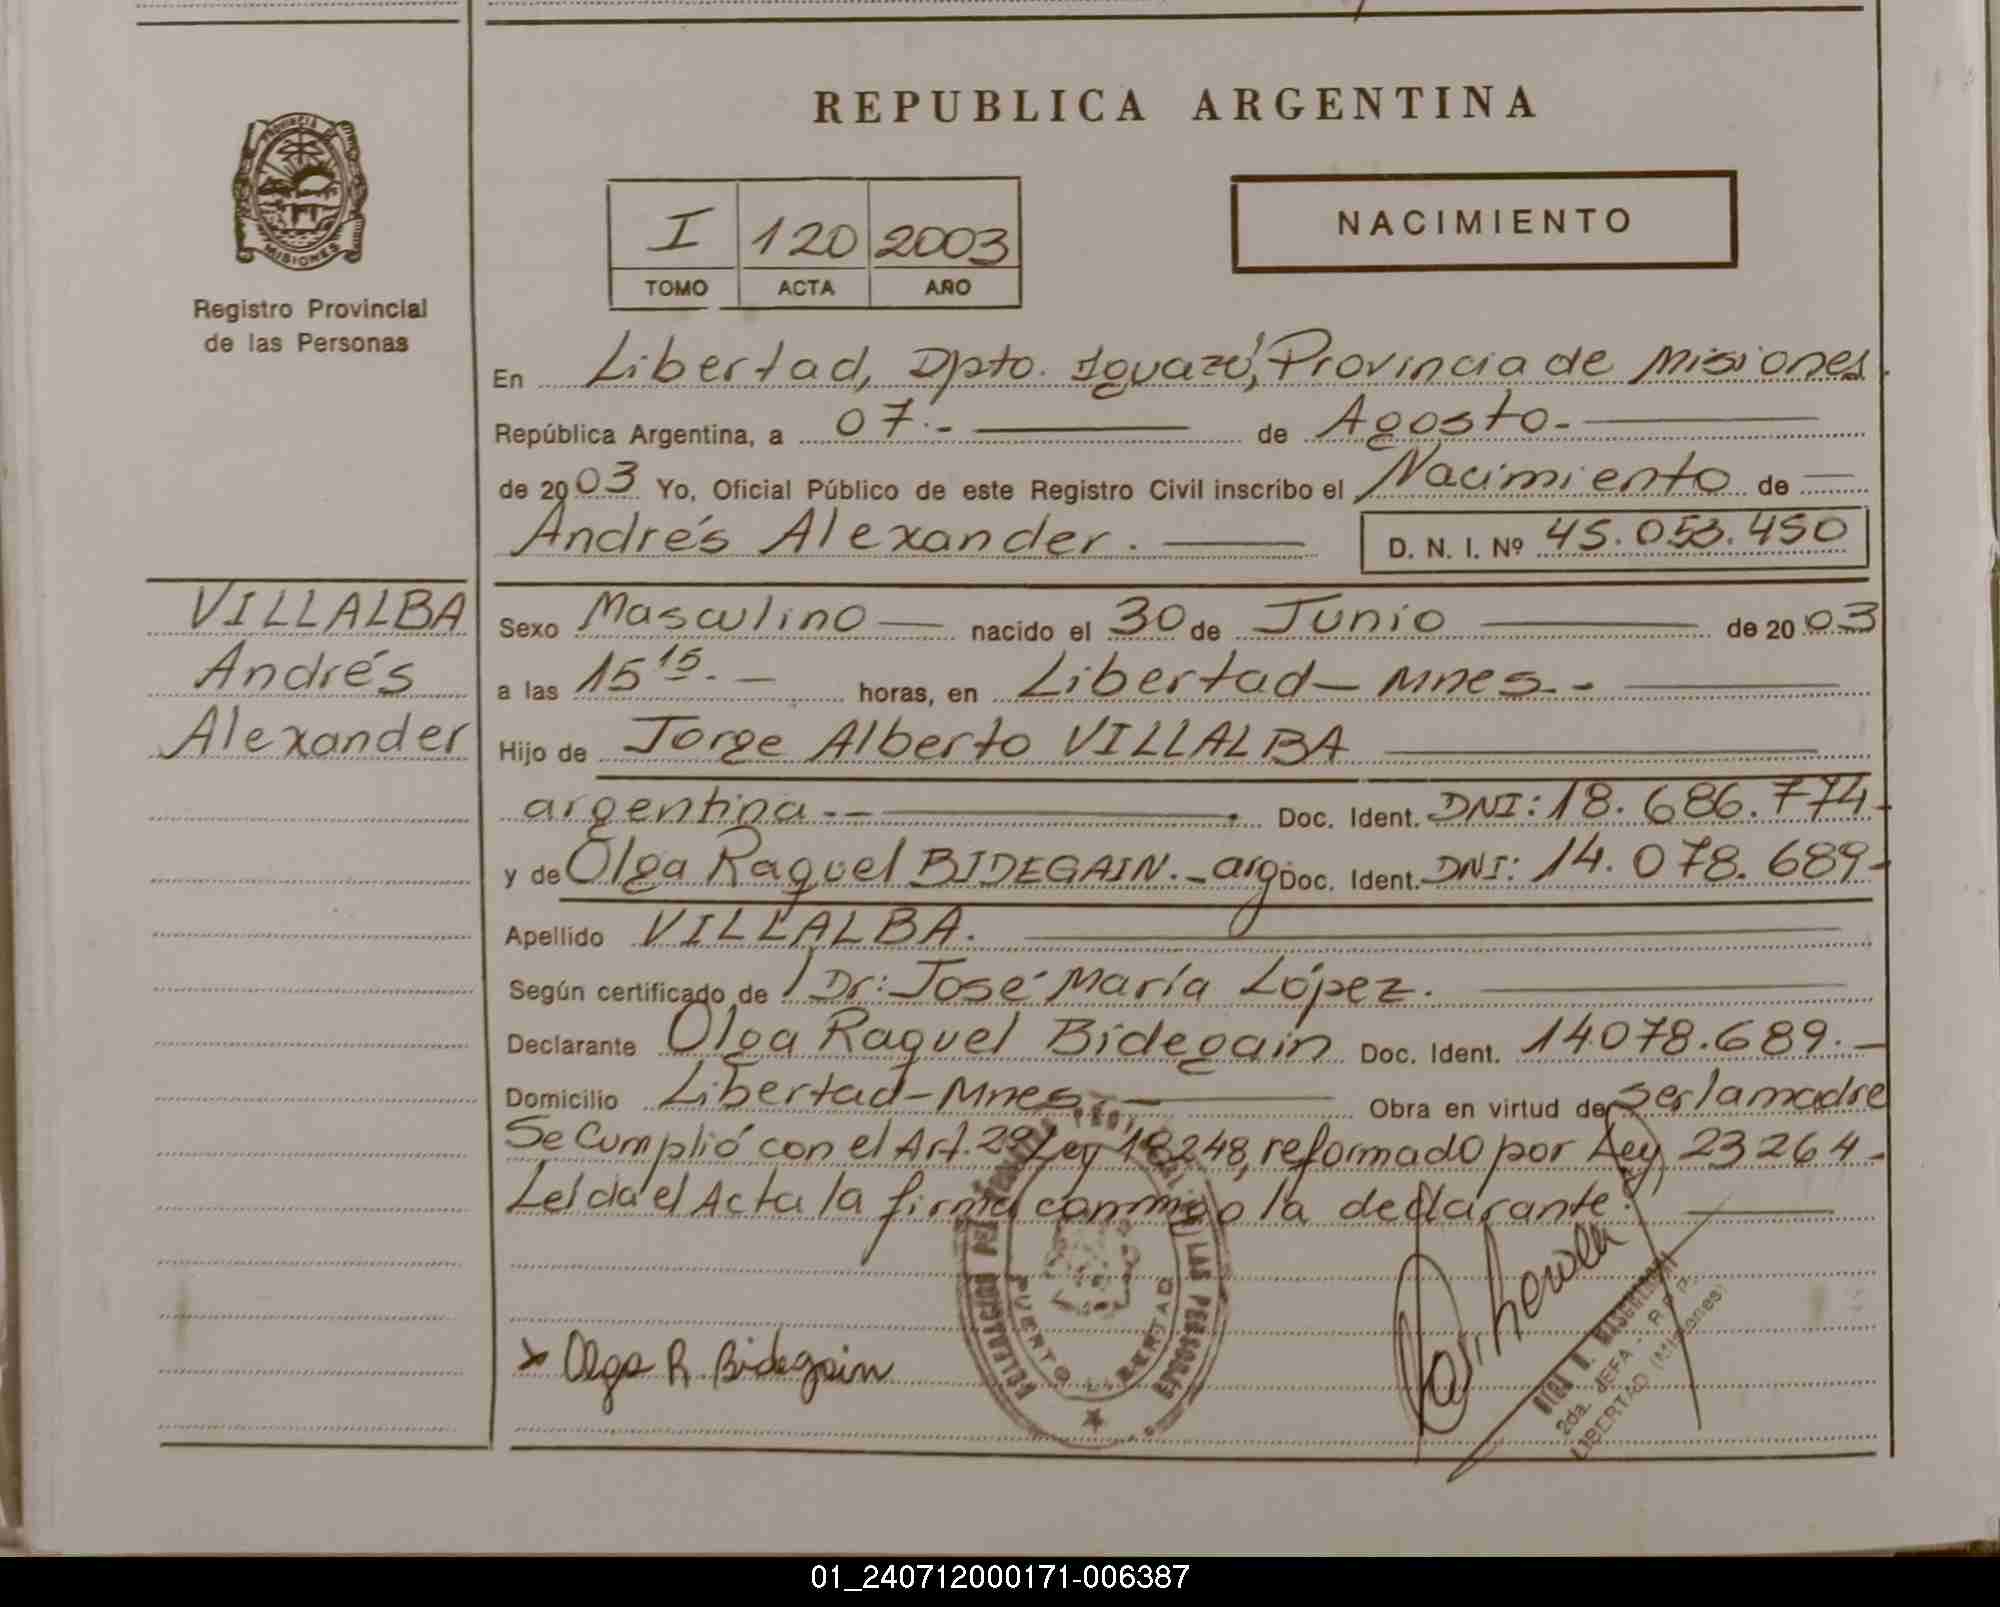 REPUBLICA ARGENTINA
PROVINCIA DE
MISIONES
Registro Provincial
de las Personas
I 120 2003
TOMO ACTA AÑO
NACIMIENTO
En Libertad, Dpto. Iguazú, Provincia de Misiones.
República Argentina, a 07.- de Agosto.-
de 2003 Yo, Oficial Público de este Registro Civil inscribo el Nacimiento de
Andrés Alexander. D. N. I. Nº 45.053.450
VILLALBA
Andrés
Alexander
Sexo Masculino nacido el 30 de Junio de 2003
a las 15 15.- horas, en Libertad- Mnes.-
Hijo de Jorge Alberto VILLALBA
argentina.-- Doc. Ident. DNI: 18.686.774-
y de Olga Raquel BIDEGAIN.- arg Doc. Ident. DNI: 14.078.689-
Apellido VILLALBA.
Según certificado de Dr: José María López.
Declarante Olga Raquel Bidegain Doc. Ident. 14.078.689.-
Domicilio Libertad-Mnes.- Obra en virtud de ser la madre
Se Cumplió con el Art. 2º Ley 18248, reformado por Ley 23264-
Leída el Acta la firma conmigo la declarante.
x Olga R. Bidegain
DELEGACION DEL LAS PERSONAS
PUERTO LIBERTAD
2da. JEFA - R.P.P.
LIBERTAD (Misiones)
01_240712000171-006387